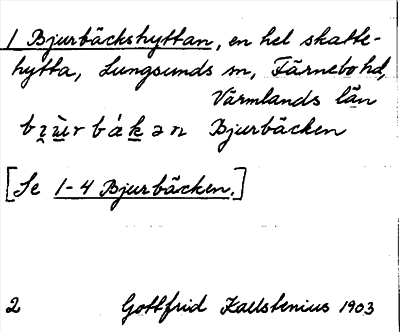 1 Bjurbäckshyttan, en hel skatte-
hytta, Lungsunds sn, Färnebo hd,
Värmlands län
Bjurbäcken
[Se 1-4 Bjurbäcken.]
2 Gottfrid Kallstenius 1903